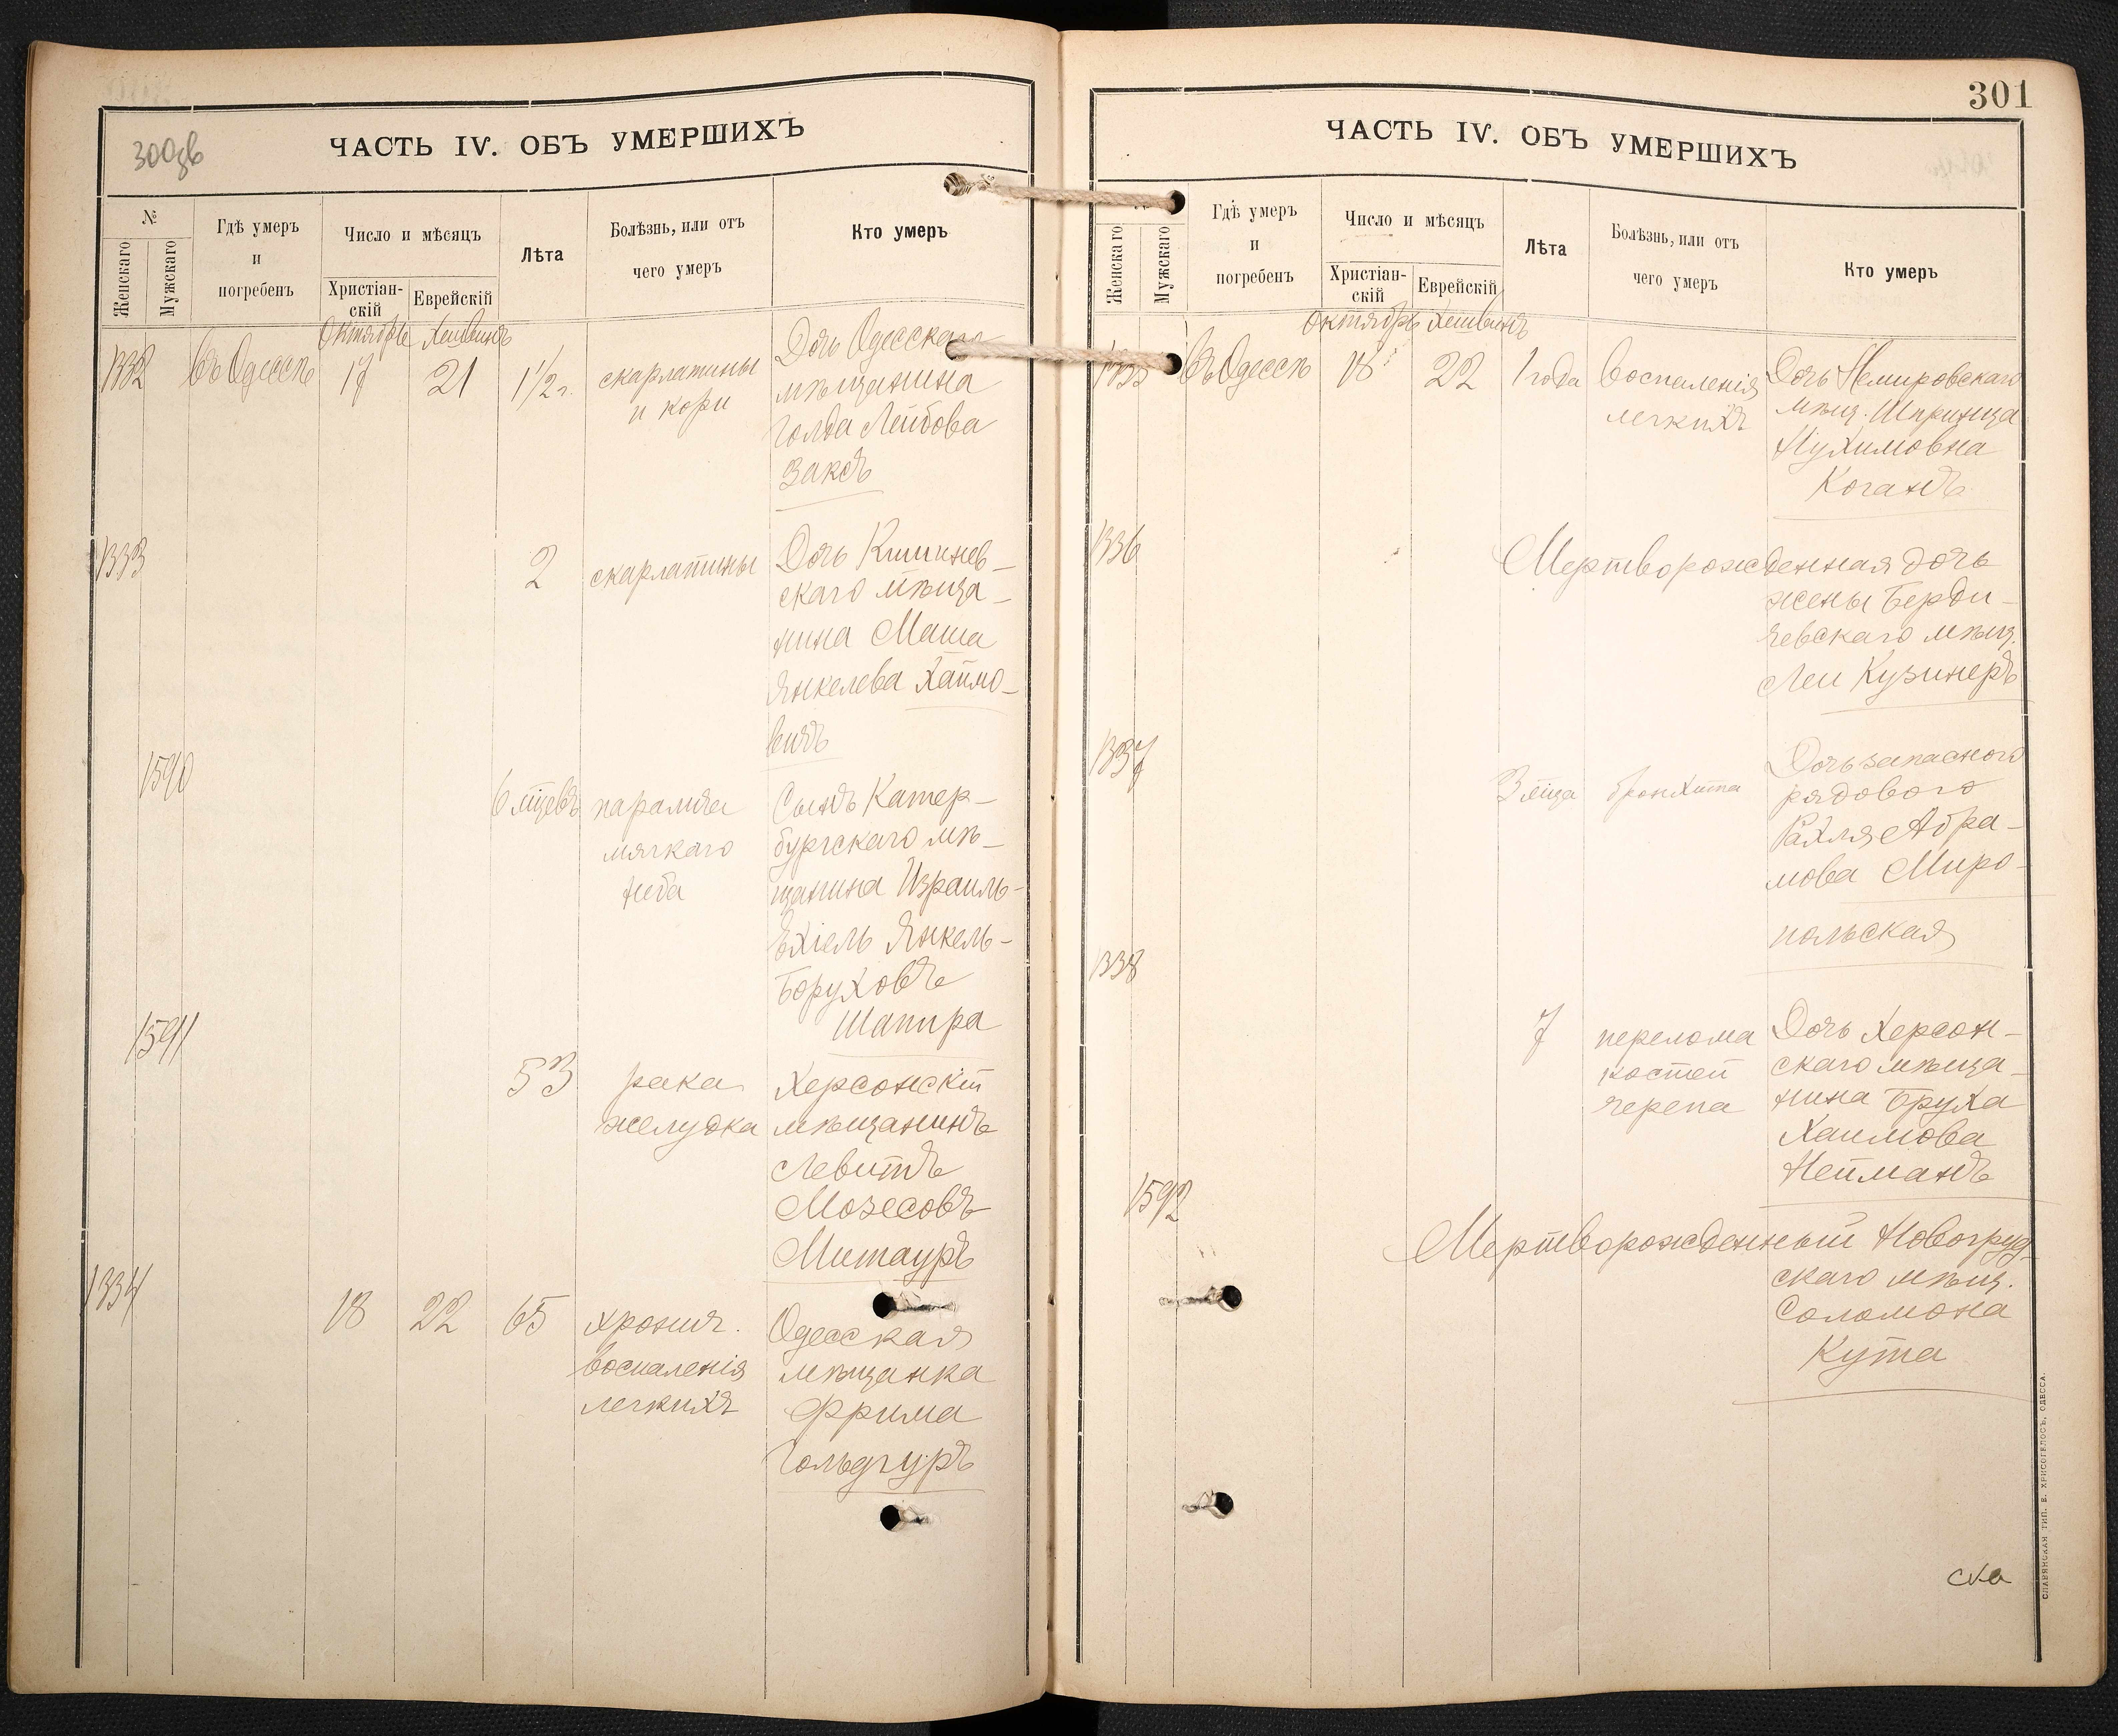 300зв
ЧАСТЬ IV. ОБЪ УМЕРШИХЪ
№
Женскаго
Мужскаго
Гдѣ умеръ
и
погребенъ
Число и мѣсяцъ
Христіан-
скій
Еврейскій
Лѣта
Болѣзнь, или отъ
чего умеръ
Кто умеръ
Октябрь Хешванъ
1332 Въ Одессѣ 17 21 1½ г. скарлатины
и кори
Дочь Одесскаго
мѣщанина
Голда Лейбова
Заксъ
1333 2 скарлатины
Дочь Кишинев-
скаго мѣща-
нина Маша
Янкелева Хаймо-
вичъ
1590 6 мцевъ паралича
мягкаго
неба
Сынъ Катер-
бургскаго мѣ-
щанина Израиль-
Ехіель Янкель-
Боруховъ
Шапира
1591 53 рака
желудка
Херсонскій
мѣщанинъ
Левитъ
Мозесовъ
Митауръ
1334 18 22 65 хронич.
воспаленія
легкихъ
Одесская
мѣщанка
Фрима
Гольдгуръ
301
ЧАСТЬ IV. ОБЪ УМЕРШИХЪ
№
Женскаго
Мужскаго
Гдѣ умеръ
и
погребенъ
Число и мѣсяцъ
Христіан-
скій
Еврейскій
Лѣта
Болѣзнь, или отъ
чего умеръ
Кто умеръ
Октябрь Хешванъ
1335 Въ Одессѣ 18 22 1 года Воспаленія
легкихъ
Дочь Немировскаго
мѣщ. Шпринца
Нухимовна
Коганъ
1336 Мертворожденная дочь
жены Берди-
чевскаго мѣщ.
Леи Кузинеръ
1337 3 мца бронхита
Дочь запасного
рядового
Рахля Абра-
мова Миро-
польская
1338 7 перелома
костей
черепа
Дочь Херсон-
скаго мѣща-
нина Бруха
Хаимова
Нейманъ
1592 Мертворожденный Новогруд-
скаго мѣщ.
Соломона
Кута
СЛАВЯНСКАЯ ТИП. Е. ХРИСОГЕЛОСЪ, ОДЕССА.